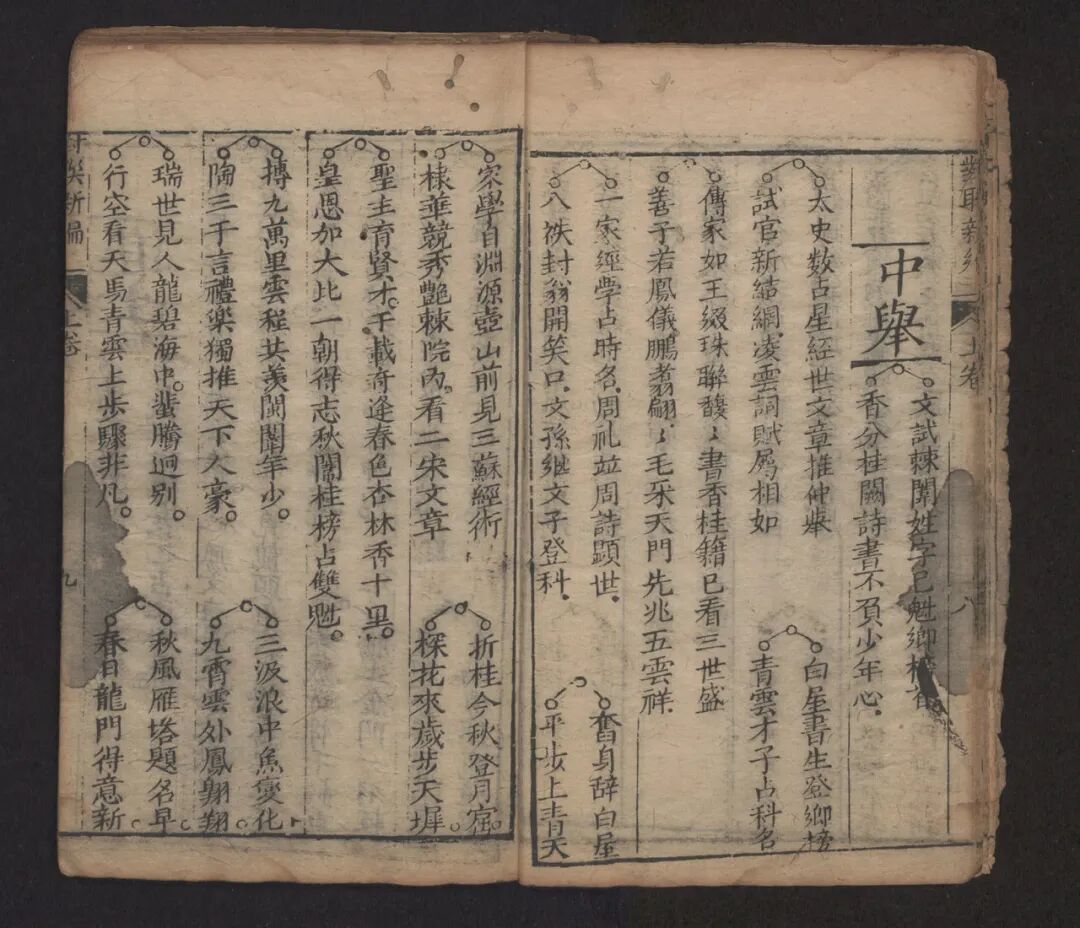 上卷
八
中舉
文試棘闈姓字已魁鄉
香分桂闕詩書不負少年心.
太史数占星經世文章推仲舉
試官新結網.凌雲詞賦屬相如
白屋書生登鄉榜
青雲才子占科名
傳家如王綴珠聯馥〻書香桂籍已看三世盛
善子若鳳儀鵬翥翩.〻毛采天門先兆五雲祥.
一家經學占時名.周礼並周詩顕世.
八袟封翁開笑口.文孫継文子登科.
奮身辞白屋
平步上青天
家學自淵源壺山前見三蘇經術
棣華競秀艷棘院內。看二宋文章
折桂今秋登月窟。
探花來歲步天墀。
聖主育賢才。千載奇逢春色杏林香十里。
皇恩加大比一朝得志秋闈桂榜占雙魁。
摶九萬里雲程共羨閩闈年少。
陶三千言禮樂獨推天下人豪。
三汲浪中魚變化。
九霄雲外鳳翱翔。
瑞世見人龍碧海中。蜚騰迥別。
行空看天馬青雲上步驟非凡。
秋風雁塔題名早
春日龍門得意新
新編
上卷
九